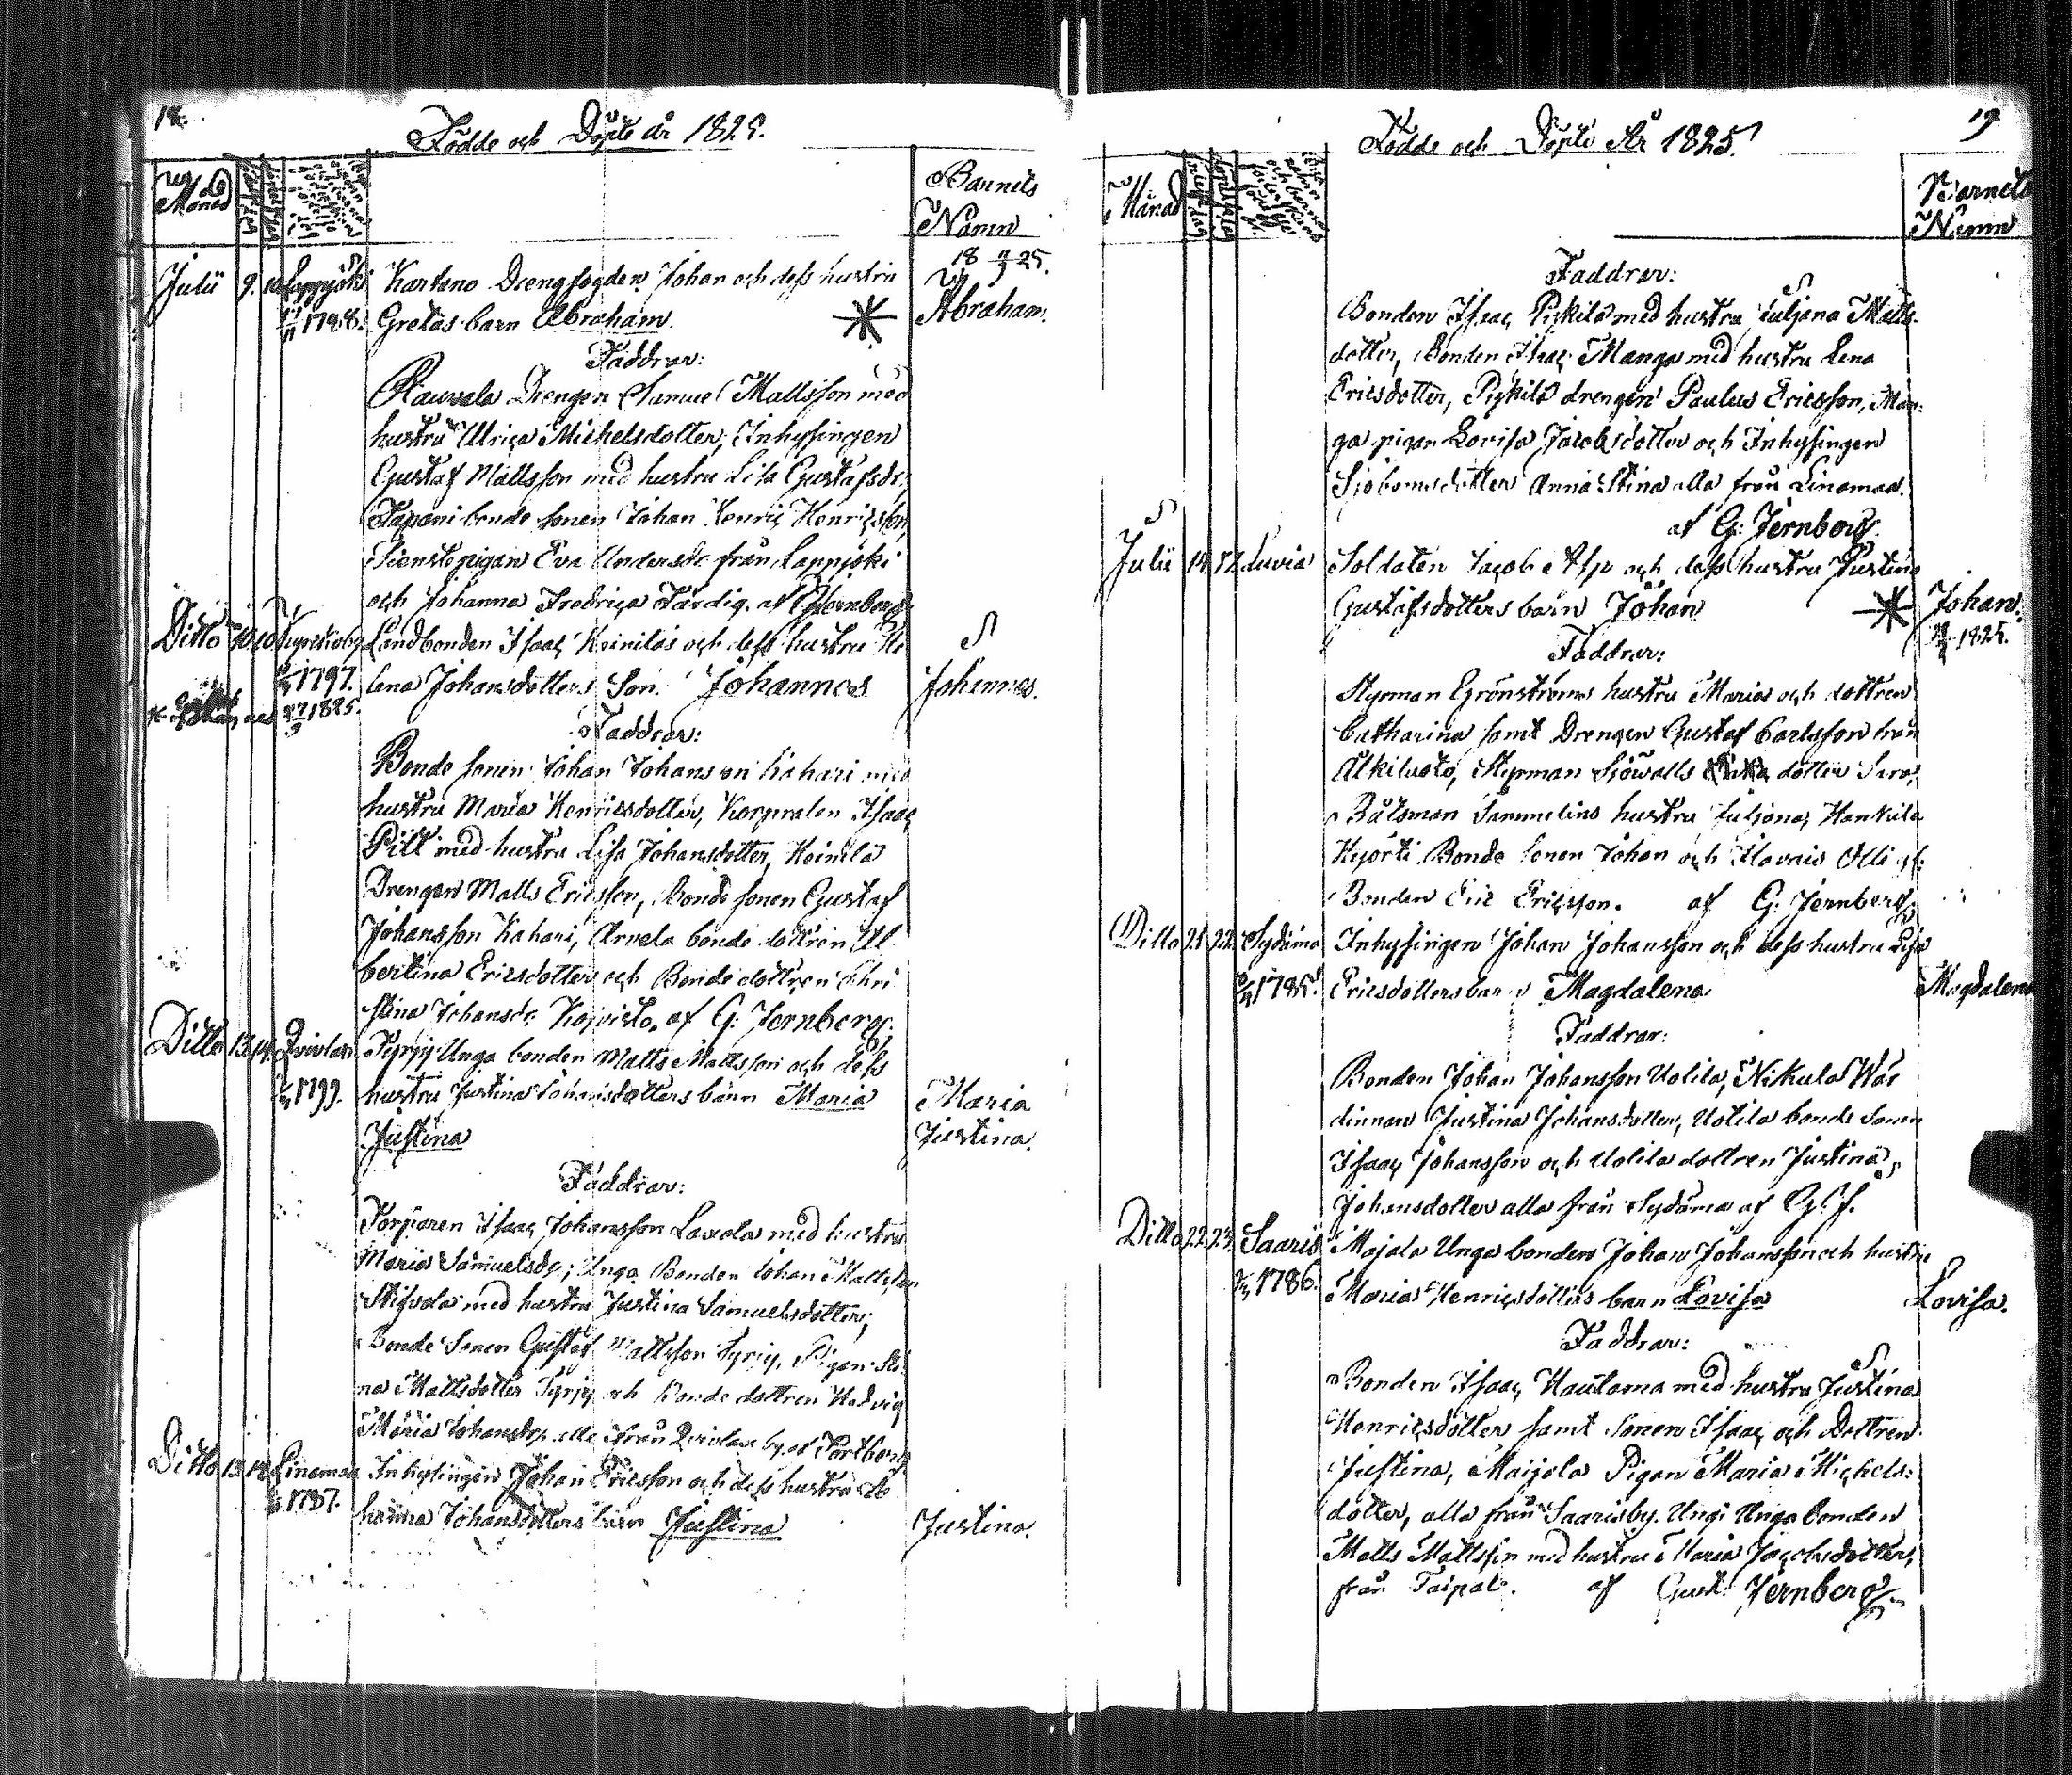 18.
Födde och Döpte år 1825.
Månad
Barnets
Namn
Julii 9. 10 Lappijoki Kartano Drengfogden Johan och dess hustru
18 25.
1788. Gretas barn Abraham. Abraham.
Faddrar:
Rauvola Drengen Samuel Mattsson med
hustru Ulrica Michelsdotter, Inhysingen
Gustaf Mattsson med hustru Lisa Gustafsdr,
Tapani bonde sonen Johan Henric Henricsson,
Tienstepigan Eva Andersdr från Lappijoki
och Johanna Fredrica Färdig. af G. Jernberg
Ditto 10 10 Landbonden Isaac Heinilas och dess hustru He
1797. lena Johansdotters Son Johannes Johannes.
1825.
Faddrar:
Bonde sonen Johan Johansson Kahari med
hustru Maria Henricsdotter, Korpralen Isaac
Pilt med hustru Lisa Johansdotter, Heinilä
Drengen Matts Ericsson, Bonde sonen Gustaf
Johansson Kahari, Arvela bonde dottren Al
bertina Ericsdotter och Bonde dottren Chri
stina Johansdr Kojvisto. af G: Jernberg.
Ditto 13 14 Qvivlax Tyrjy Unga bonden Matts Mattsson och dess
1799. hustru Justina Johansdotters barn Maria Maria
Justina Justina.
Faddrar:
Torparen Isaac Johansson Laxola med hustru
Maria Samuelsdr; Unga Bonden Johan Mattsson
med hustru Justina Samuelsdotter;
Bonde Sonen Gustaf Mattsson Tyrjy, Pigan Sti
na Mattsdotter Tyrjy och Bonde dottren Hedvig
Maria Johansdr alla från Qvivlax by. af
Ditto 13 14 Linamaa Inhysingen Johan Ericsson och dess hustru Ca
1787. harina Johansdotters barn Justina Justina.
19
Födde och Döpte År 1825.
Månad
Barnets
Namn
Faddrar:
Bonden Isaac Piskilä med hustru Juljana Matts-
dotter, Bonden Isac Manga med hustru Lena
Ericsdotter, Piskilä drengen Paulus Ericsson, Man-
ga pigan Lovisa Jacobsdotter och Inhysingen
Sjöbomsdotter Anna Stina alla från Linamaa.
af G: Jernberg
Julii 14 17 Luvia Soldaten Jacob Asp och dess hustru Justina
Gustafsdotters barn Johan Johan.
1825.
Faddrar:
Styrman Grönströms hustru Maria och dottren
Catharina samt Drengen Gustaf Carlsson från
Älkiluoto, Styrman Sjöwalls dotter Sara,
Båtsman Sammelins hustru Juljana, Hankila
Kyörti Bonde sonen Johan och Ilavais Olli gl:
Bonden Eric Ericsson. af G: Jernberg.
Ditto 21 22 Sydäma Inhysingen Johan Johansson och dess hustru Lisa
Ericsdotters barn Magdalena Magdalena
Faddrar:
Bonden Johan Johansson Uotila, Nikula Wär
dinnan Justina Johansdotter, Uotila bonde Sonen
Isaac Johansson och Uotila dottren Justina
Johansdotter alla från Sydäma af G. J.
Ditto 22 23 Saaris Majala Unga bonden Johan Johansson och hustru
1786. Marias Henricsdotters barn Lovisa Lovisa.
Faddrar:
Bonden Isaac Hautama med hustru Justina
Henricsdotter samt Sonen Isaac och Dottren
Justina, Maijala Pigan Maria Michels-
dotter, alla från Saarisby. Ungi Unga bonden
Matts Mattsson med hustru Maria Jacobsdotter,
från Taipale. af Gust. Jernberg